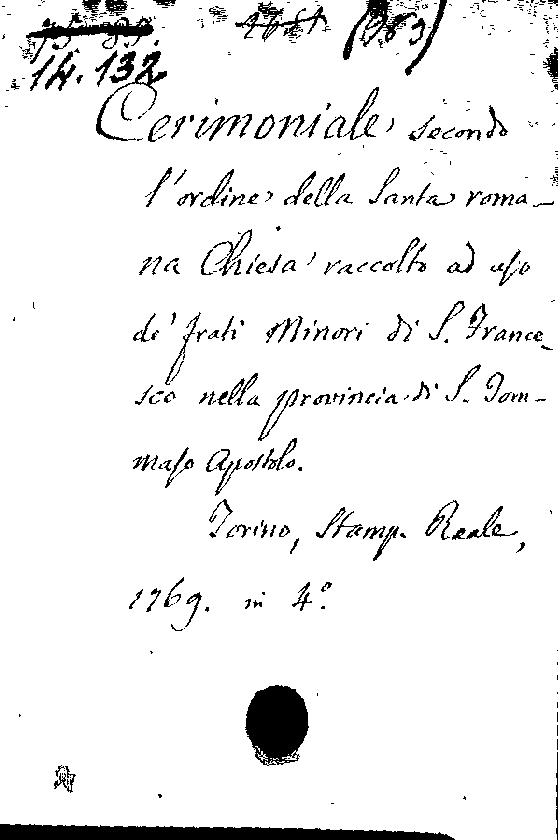 (383)
14.132
Cerimoniale secondo
l'ordine della Santa roma-
na Chiesa raccolto ad uso
de' frati Minori di S. France-
sco nella provincia di S. Tom-
maso Apostolo.
Torino, Stamp. Reale,
1769. in 4°.